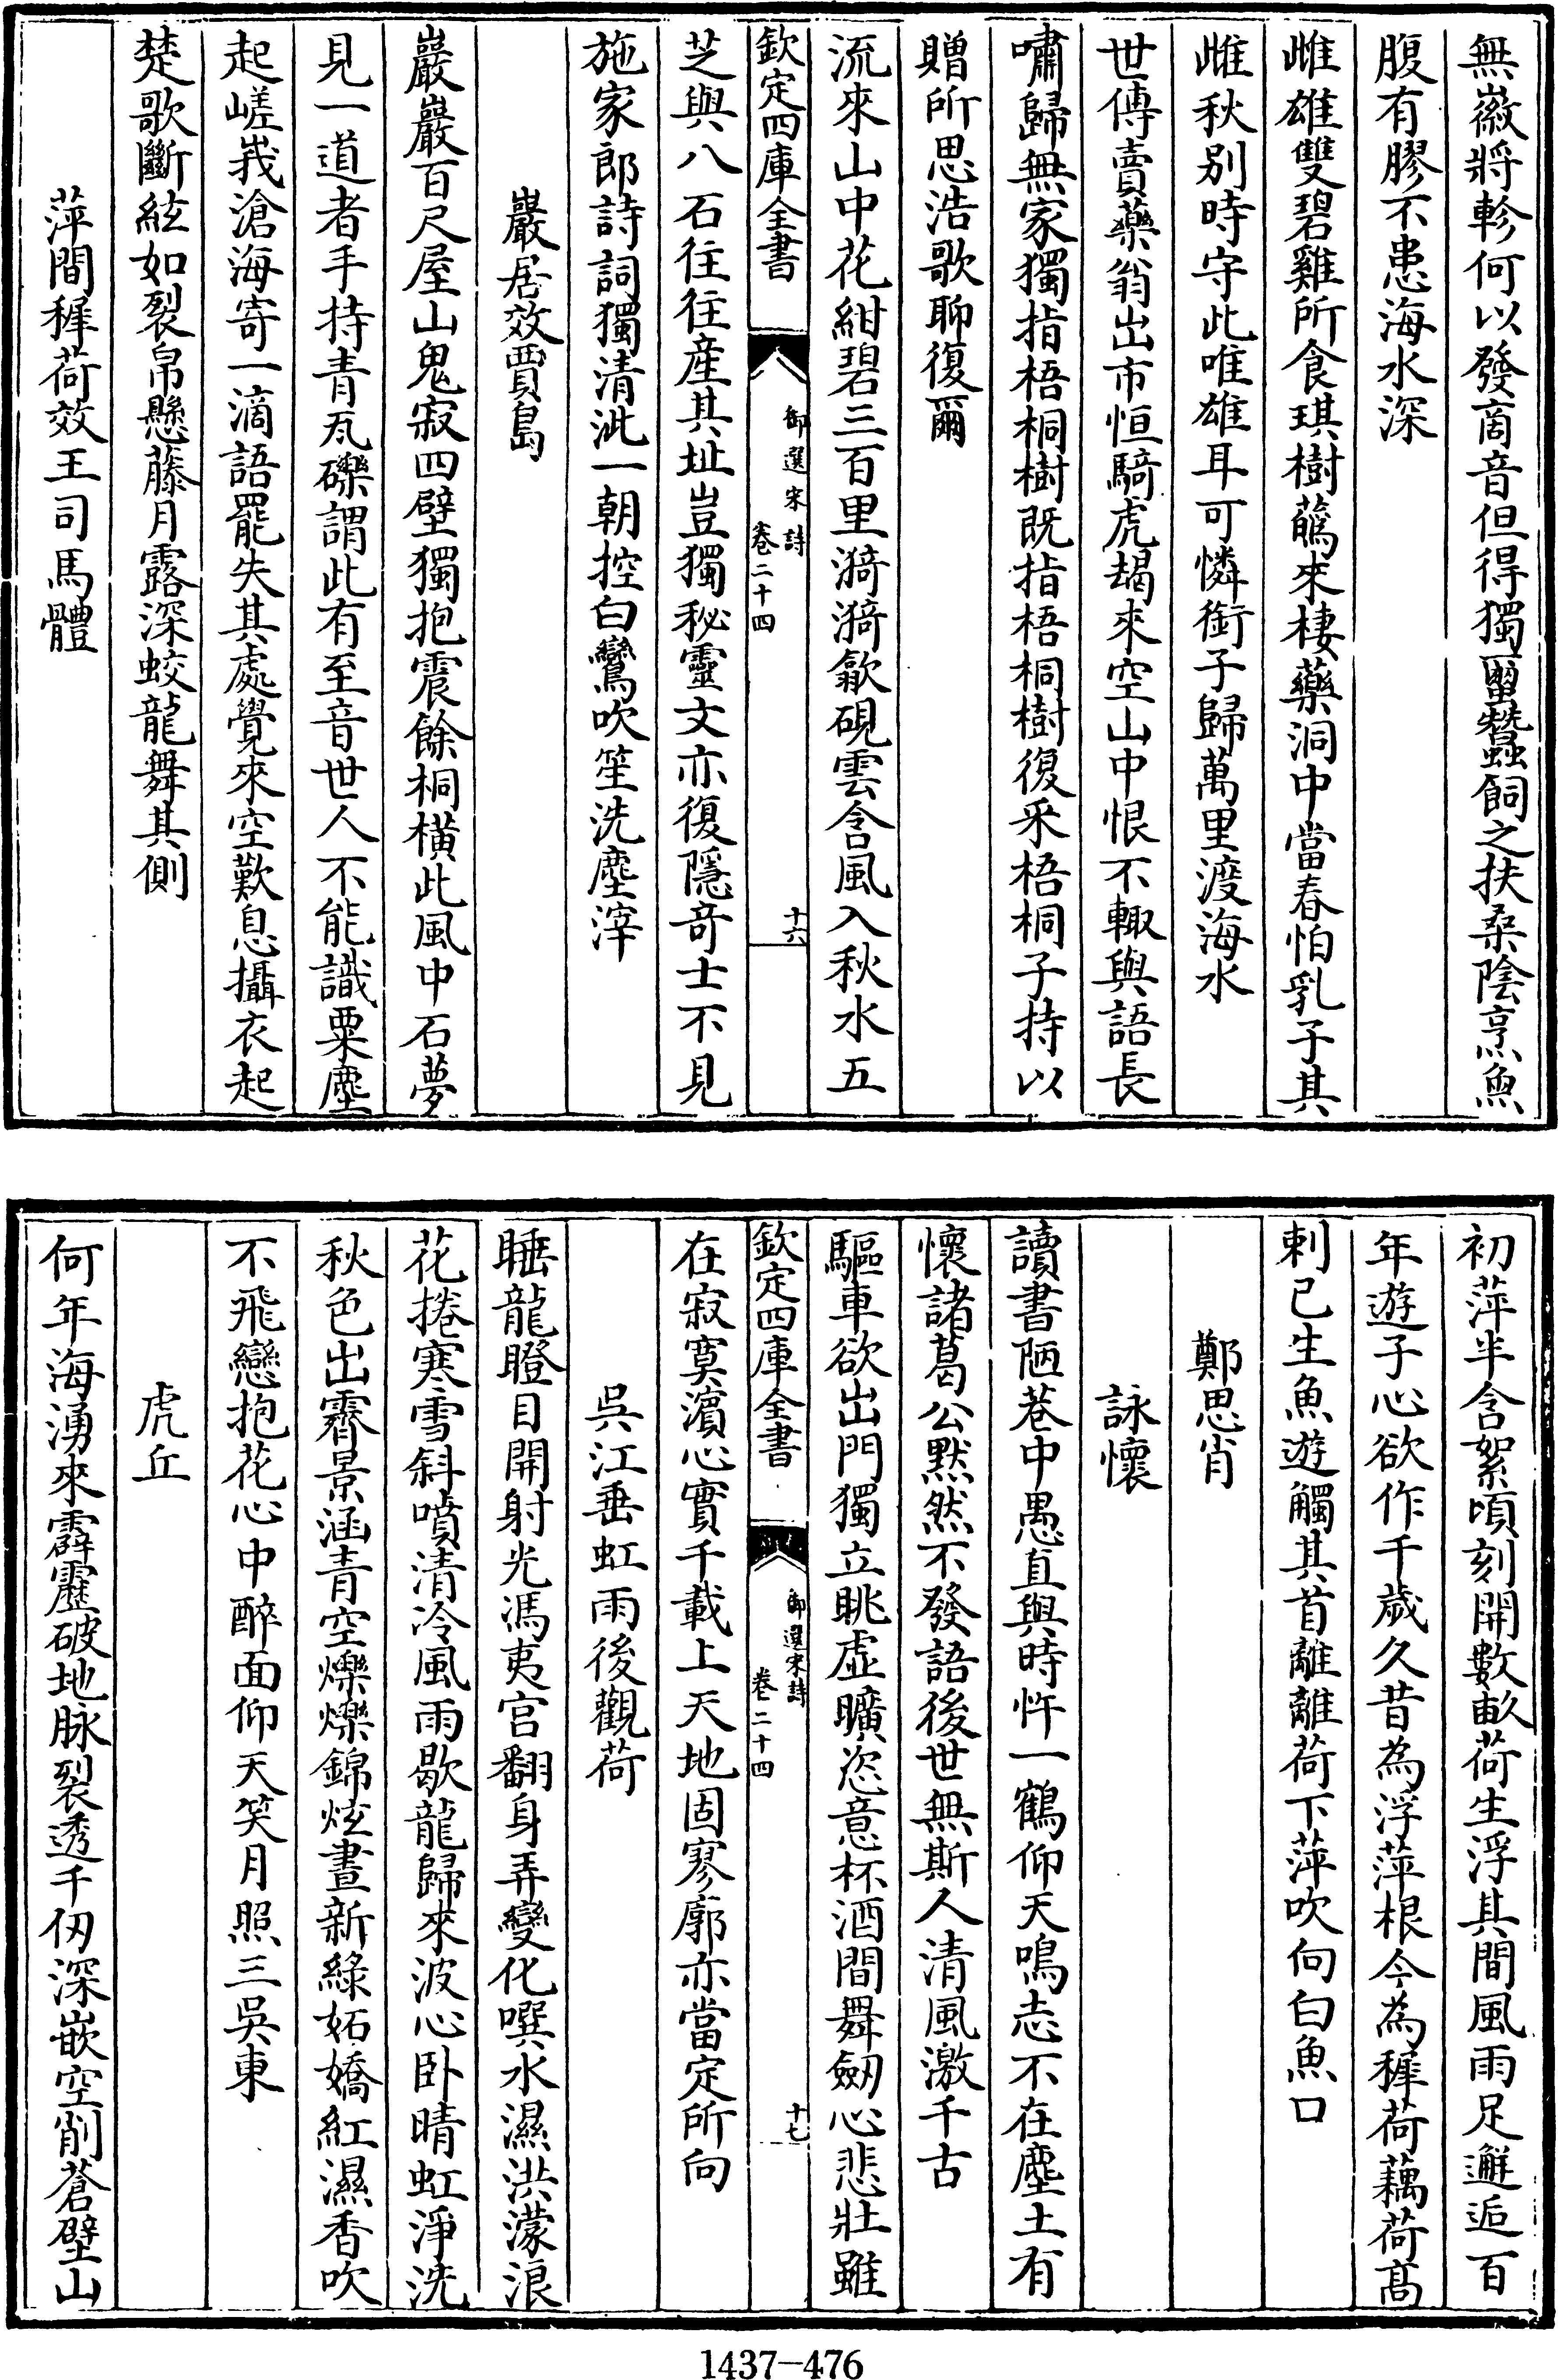 無徽將軫何以發商音但得獨繭蠶飼之扶桑陰烹魚
腹有膠不患海水深
雌雄雙碧雞所食琪樹蘤來棲藥洞中當春怕乳子其
雌秋别時守此唯雄耳可憐銜子歸萬里渡海水
世傳賣藥翁出市恒騎虎朅來空山中恨不輙與語長
嘯歸無家獨指梧桐樹既指梧桐樹復采梧桐子持以
贈所思浩歌聊復爾
流來山中花紺碧三百里漪漪歙硯雲含風入秋水五
欽定四庫全書
御選宋詩
卷二十四
十六
芝與八石往往産其址豈獨秘靈文亦復隱竒士不見
施家郎詩詞獨清泚一朝控白鸞吹笙洗塵滓
巖居效賈島
巖巖百尺屋山鬼寂四壁獨抱震餘桐横此風中石夢
見一道者手持青瓦礫謂此有至音世人不能識粟塵
起嵯峩滄海寄一滴語罷失其處覺來空歎息攝衣起
楚歌斷絃如裂帛懸藤月露深蛟龍舞其側
萍間穉荷效王司馬體
初萍半含絮頃刻開數畝荷生浮其間風雨足邂逅百
年遊子心欲作千歲久昔為浮萍根今為穉荷藕荷髙
刺已生魚遊觸其首離離荷下萍吹向白魚口
鄭思肖
詠懷
讀書陋巷中愚直與時忤一鶴仰天鳴志不在塵土有
懷諸葛公黙然不發語後世無斯人清風激千古
驅車欲出門獨立眺虛曠恣意杯酒間舞劒心悲壯雖
欽定四庫全書
御選宋詩
卷二十四
十七
在寂寞濵心實千載上天地固寥廓亦當定所向
吳江垂虹雨後觀荷
睡龍瞪目開射光馮夷宫翻身弄變化噀水濕洪濛浪
花捲寒雪斜噴清冷風雨歇龍歸來波心卧晴虹淨洗
秋色出霽景涵青空爍爍錦炫晝新綠妬嬌紅濕香吹
不飛戀抱花心中醉面仰天笑月照三吳東
虎丘
何年海湧來霹靂破地脉裂透千仞深嵌空削蒼壁山
1437—476